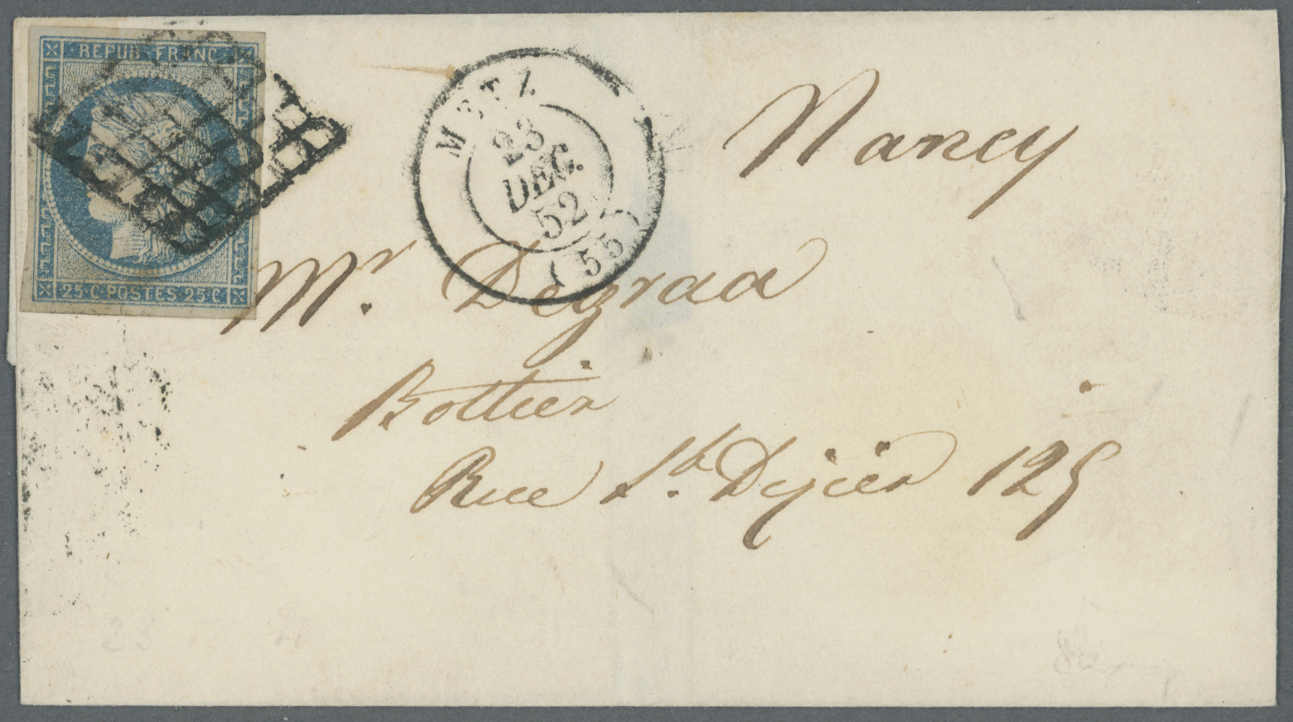 REPUB. FRANC.
25 C POSTES 25 C
METZ
23
DEC.
52
(55)
Nancy
Mr. Degrad
Bottier
Rue St. Dizier 125